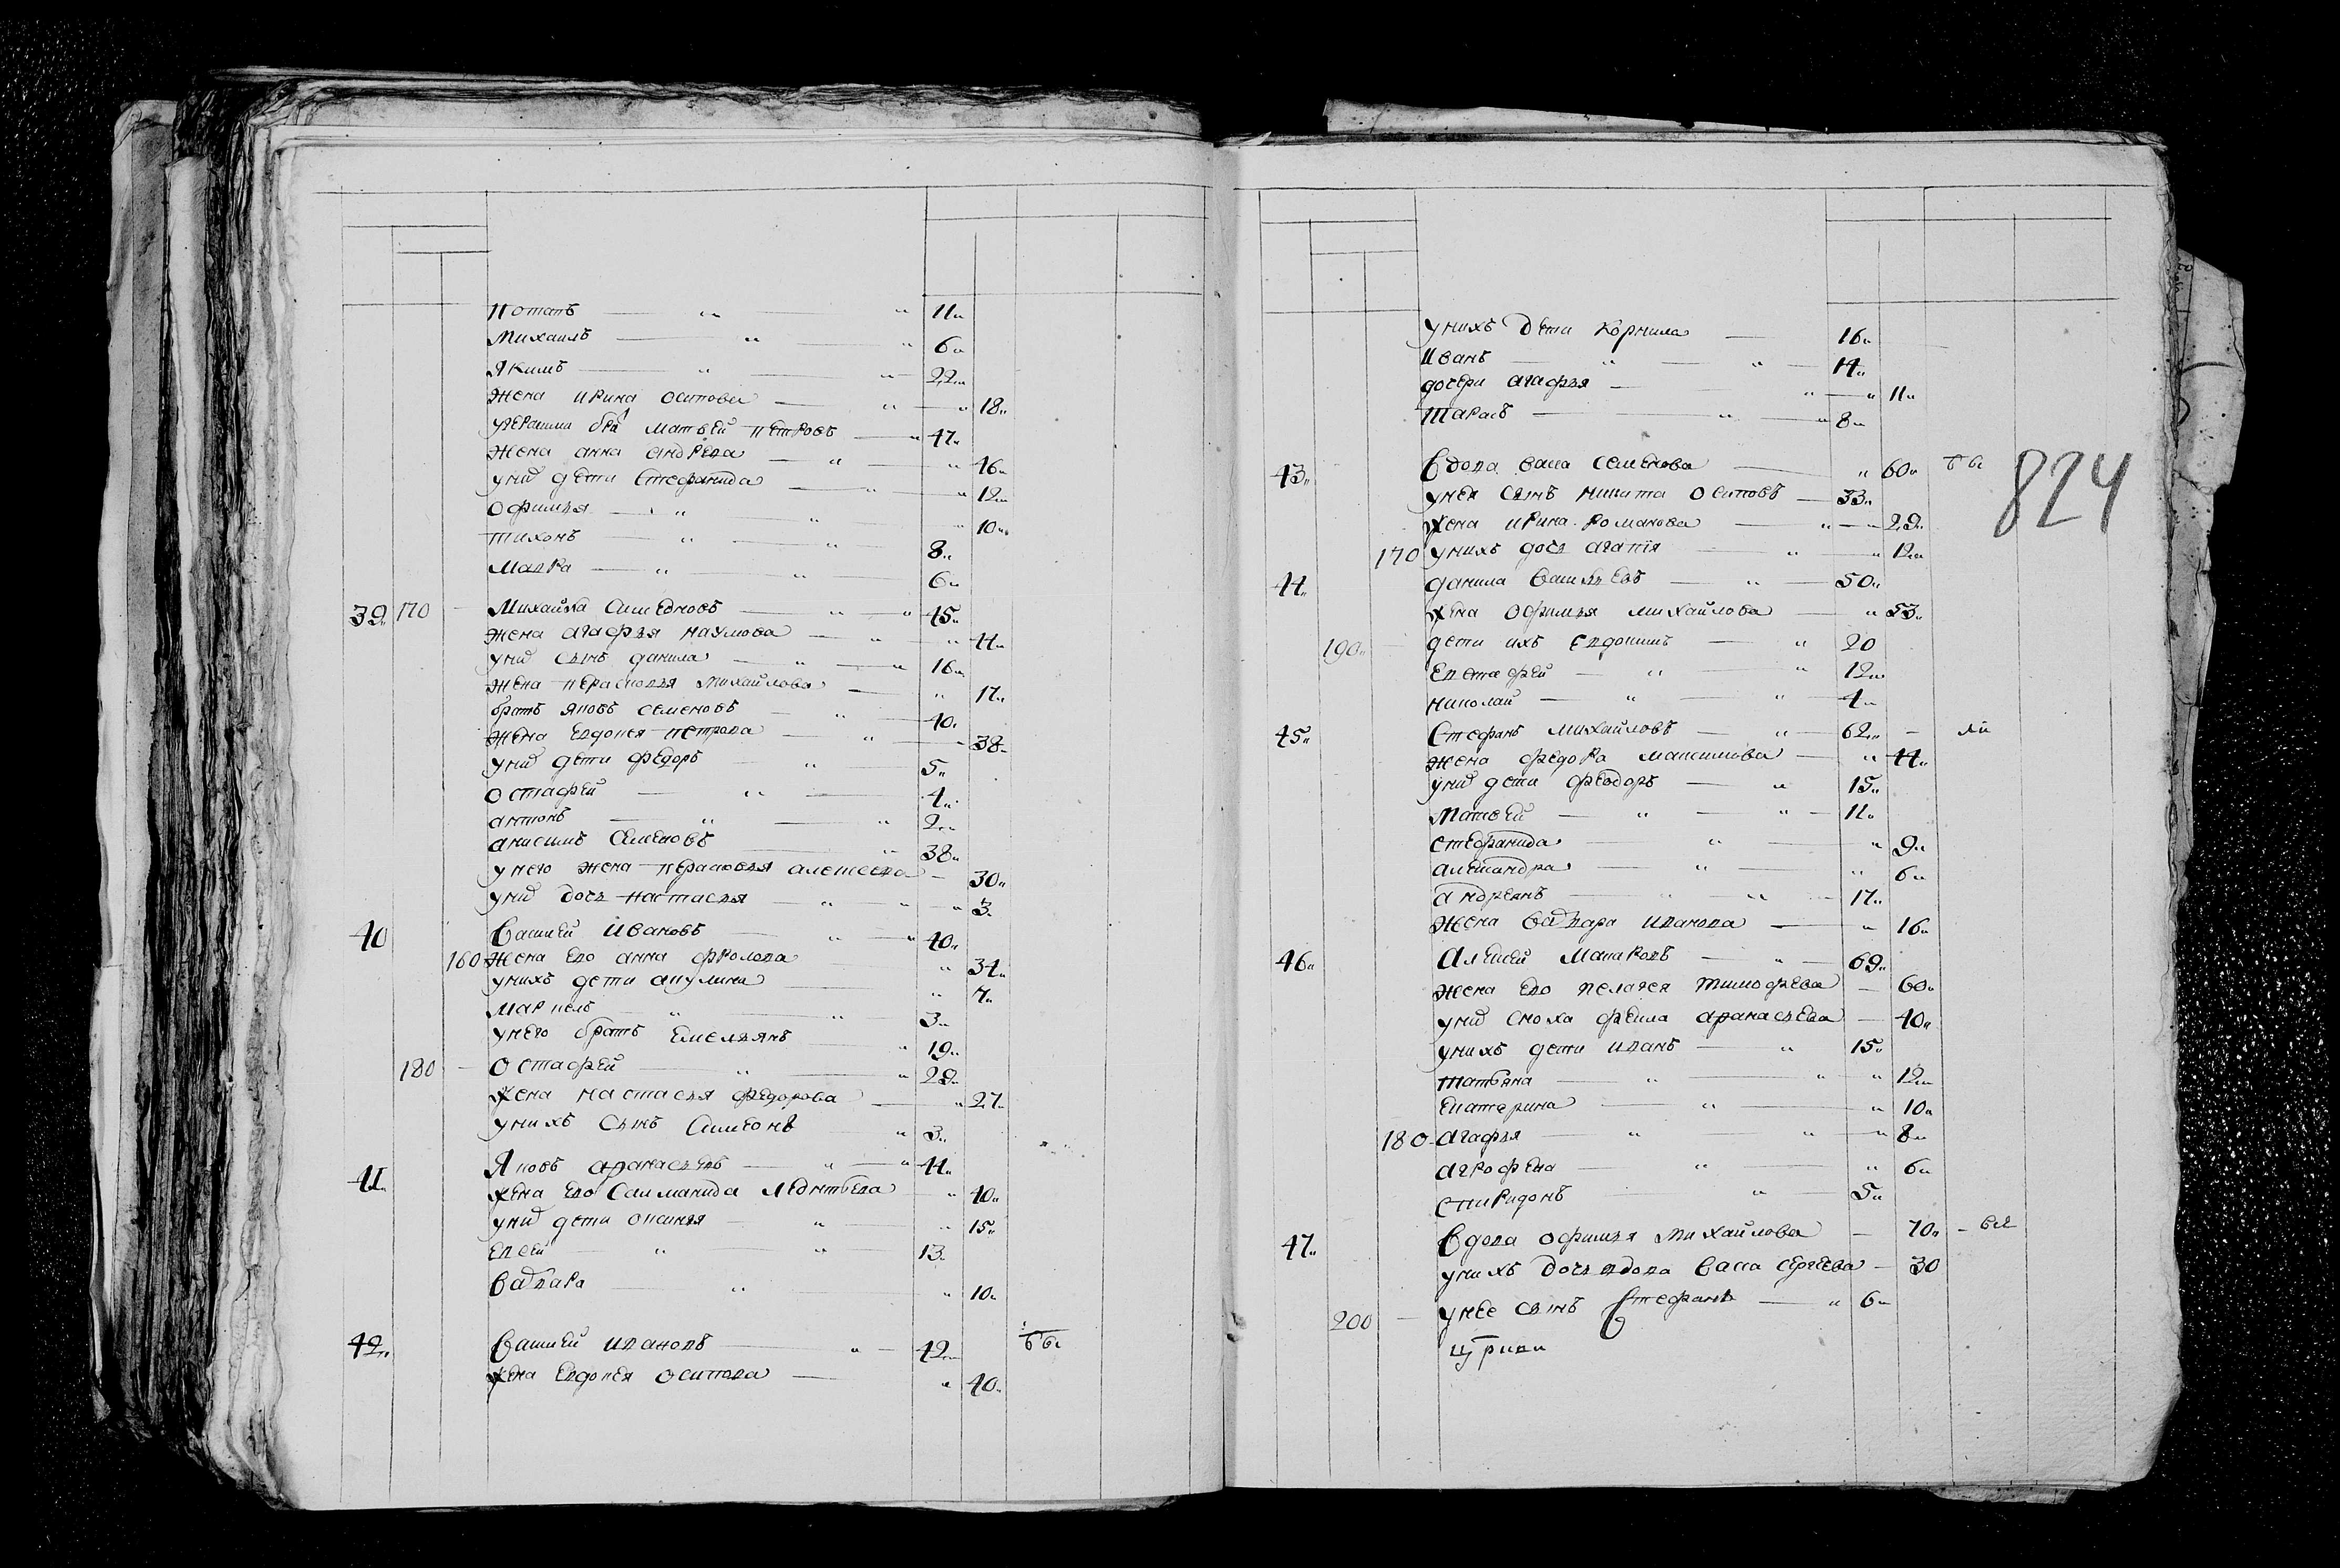 Потапъ 11
Михаилъ 6
Якимъ 22
Жена Ирина Осипова 18
Матвей Петровъ 47
Жена Анна Андрева 46
у них дети Стефанида 12
Офимья 10
Тихонъ 8
Марка 6
39 170 Михайла Симеоновъ 45
жена Агафья Наумова 44
у них сынъ Данила 16
жена Парасковья Михайлова 17
братъ Яковъ Семеновъ 40
жена Евдокея Петрова 38
у них дети Федоръ 5
Остафей 4
Антонъ 2
Анисимъ Семеновъ 38
у него жена Парасковья Алексеева 30
у них дочь Настасья 3
40 Василей Ивановъ 40
160 жена ево Анна Фролова 34
у нихъ дети Акулина 7
Маркелъ 3
у него братъ Емельянъ 19
180 Остафей 29
жена Настасья Федорова 27
у нихъ сынъ Симеонъ 3
41 Яковъ Афанасьевъ 44
жена ево Саламанида Леонтьева 40
у них дети Оксинья 15
Евсей 13
Варвара 10
42 Василей Ивановъ 42
жена Евдокея Осипова 40
у нихъ дети Корнила 16
Иванъ 14
дочери Агафья 11
Тарасъ 8
824
43 Вдова Васса Семенова 60
у нея сынъ Никита Осиповъ 33
жена Ирина Романова 29
170 у нихъ дочь Агапія 12
44 Данила Васильевъ 50
жена Офимья Михайлова 53
190 дети ихъ Евдокимъ 20
Евстафей 12
Николай 4
45 Стефанъ Михайловъ 62
жена Федора Максимова 44
у них дети Феодоръ 15
Матвей 11
Стефанида 9
Александра 6
Андреянъ 17
жена Варвара Иванова 16
46 Алексей Макаровъ 69
жена ево Пелагея Тимофеева 60
у них сноха Фекла Афанасьева 40
у нихъ дети Иванъ 15
Татьяна 12
Екатерина 10
180 Агафья 8
Агрофена 6
Спиридонъ 5
47 Вдова Офимья Михайлова 70
у нихъ дочь вдова Васса Сергеева 30
200 у нее сынъ Стефанъ 6